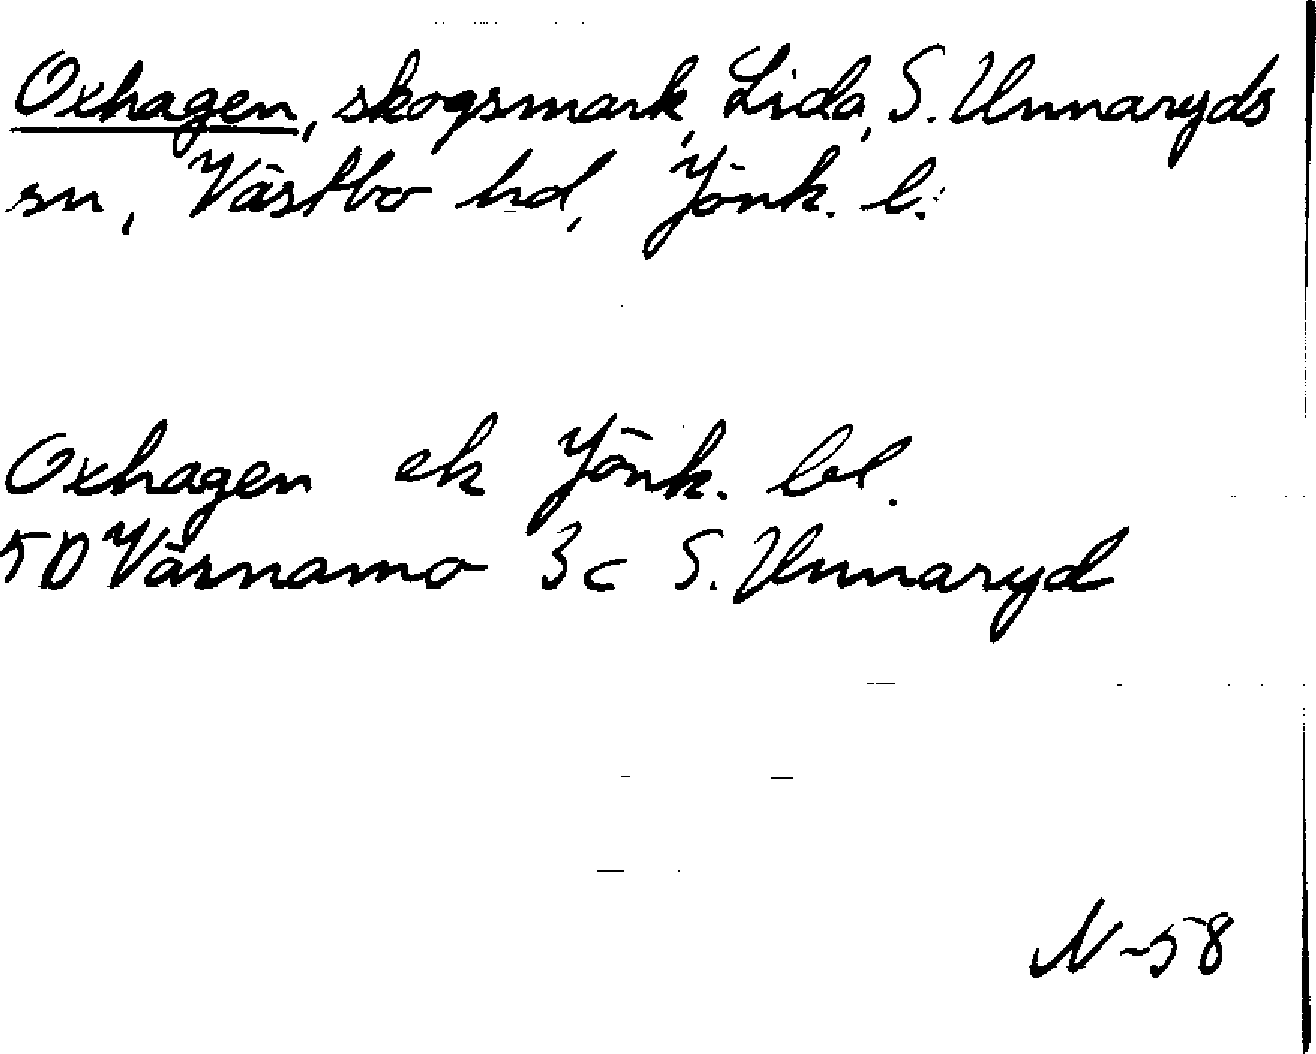 Oxhagen, skogsmark, Lida, S. Unnaryds
sn, Västbo hd, Jönk. l.
Oxhagen ek Jönk. bl.
5D Värnamo 3c S. Unnaryd
N-58